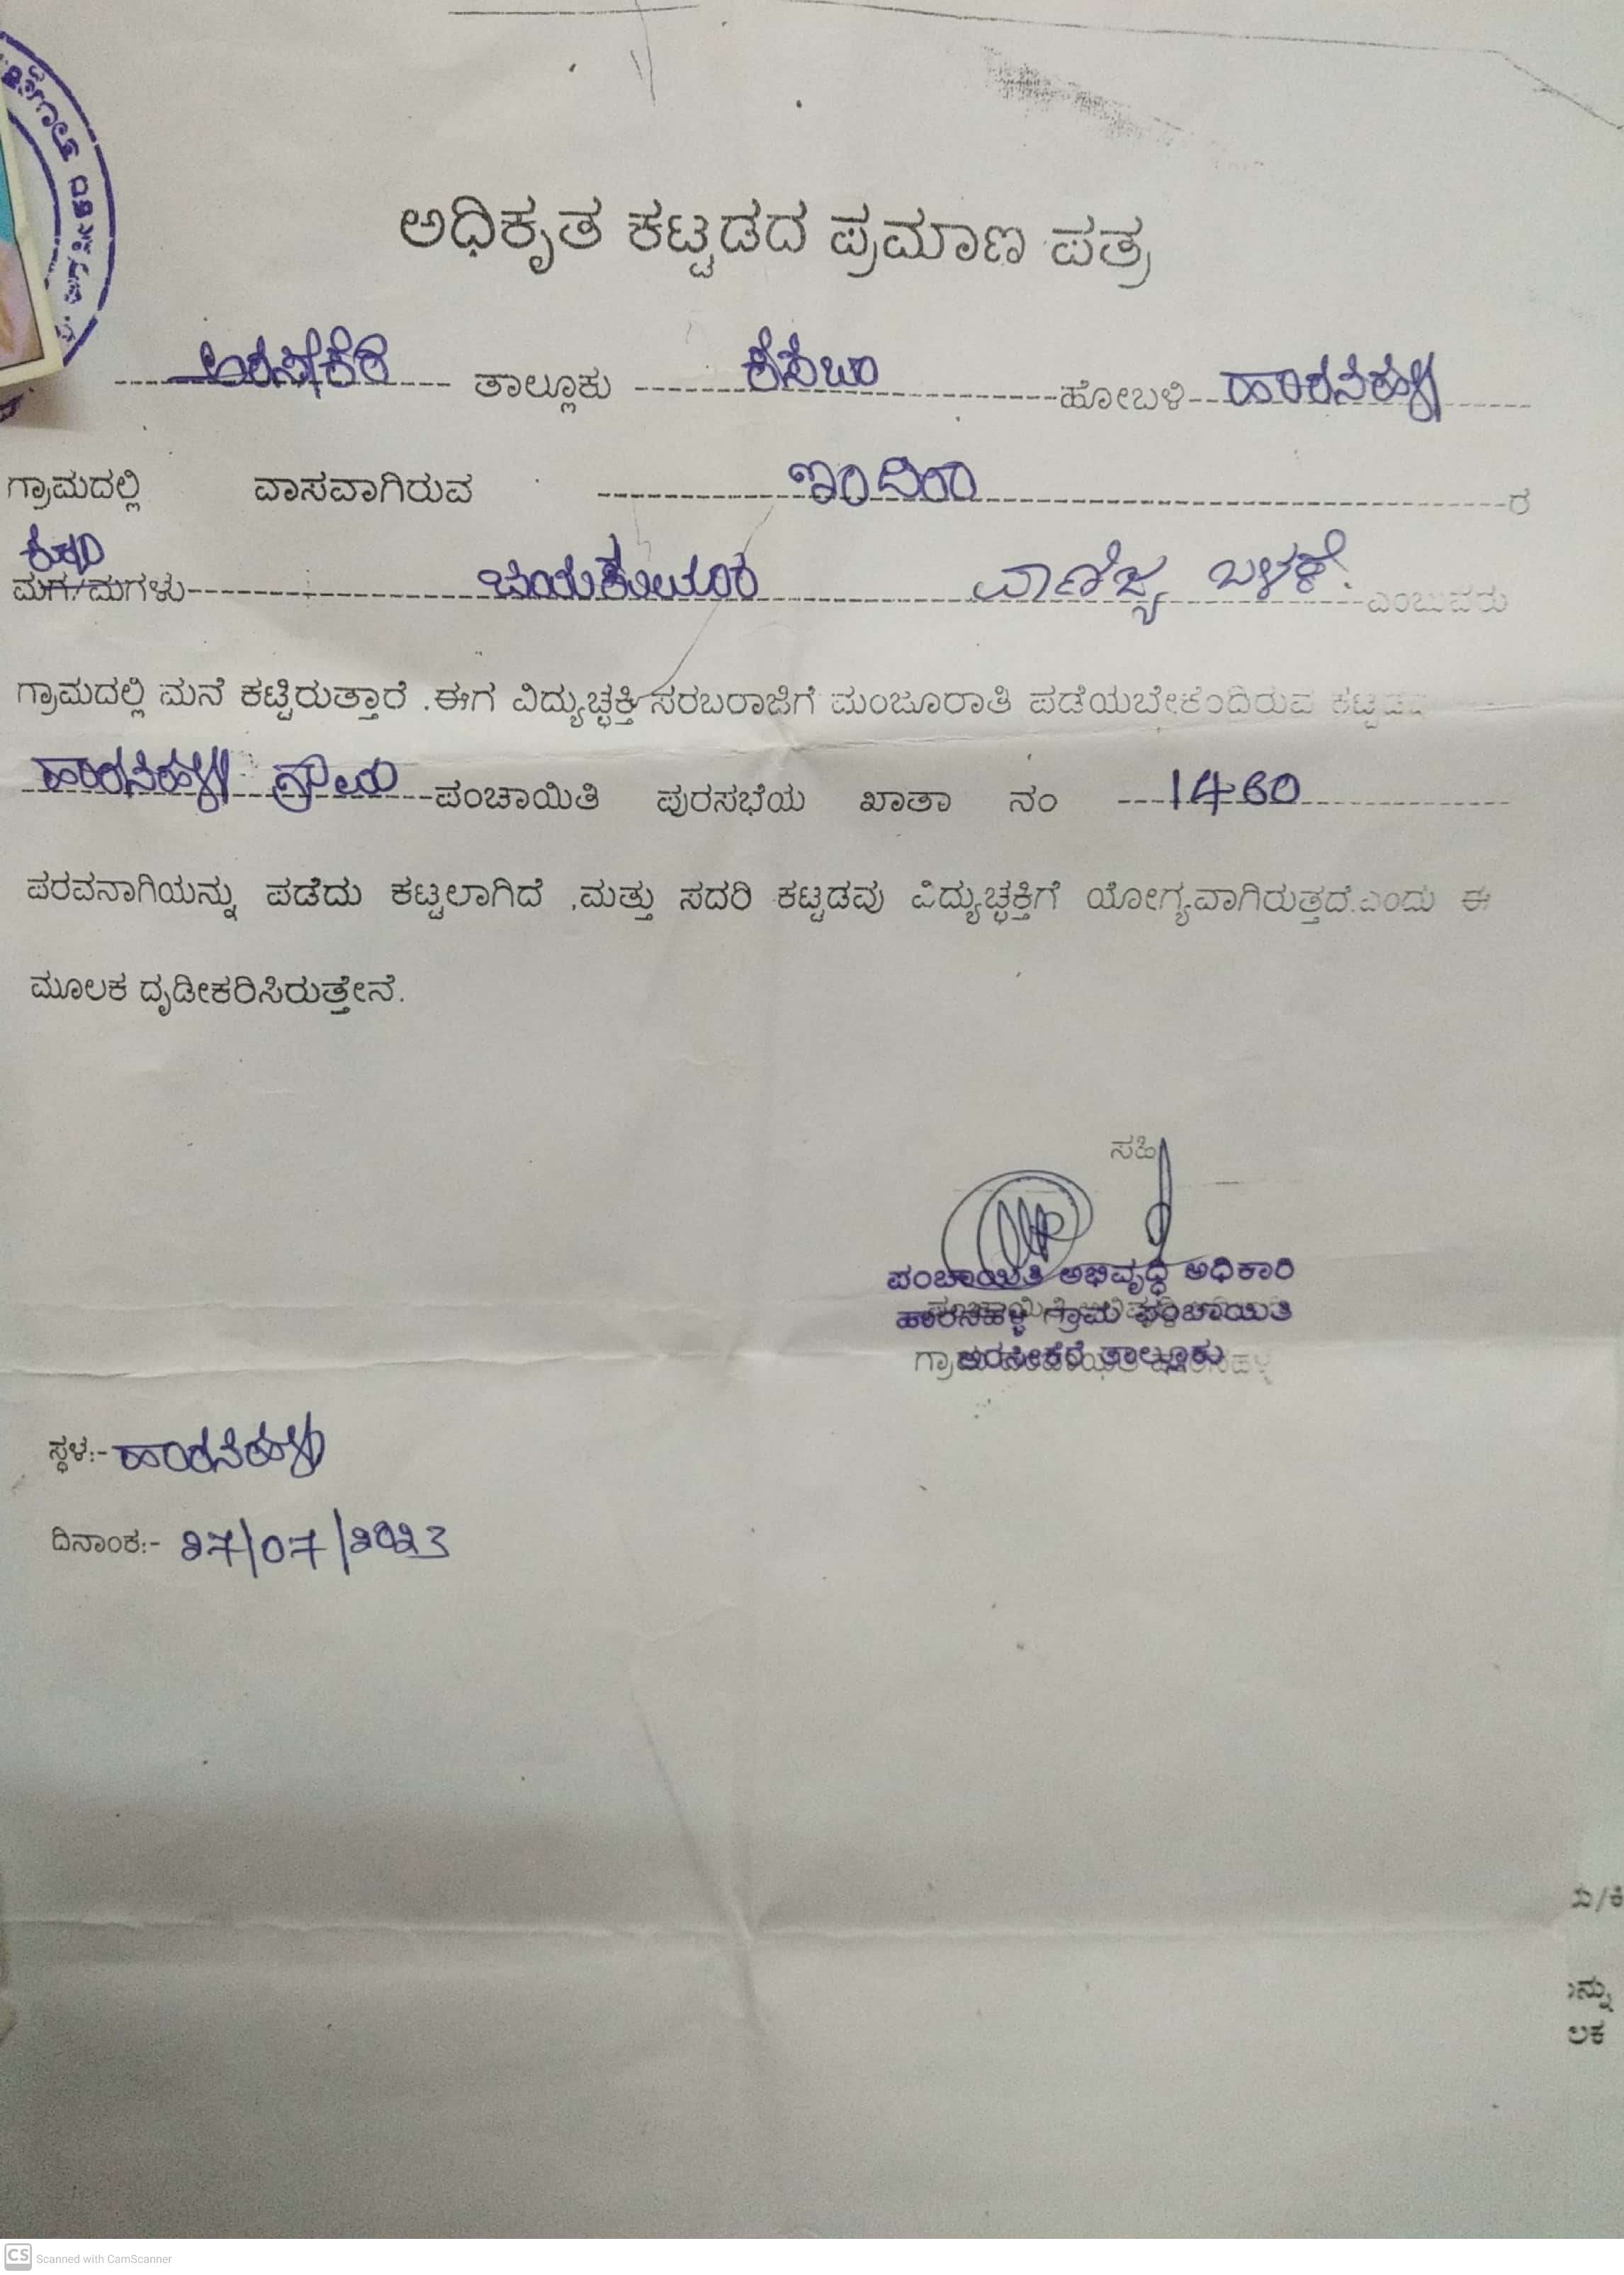 ಅಧಿಕೃತ ಕಟ್ಟಡದ ಪ್ರಮಾಣ ಪತ್ರ
ಅರಸೀಕೆರೆ ತಾಲ್ಲೂಕು ಕಸಬಾ ಹೋಬಳಿ ಹಾರನಹಳ್ಳಿ
ಗ್ರಾಮದಲ್ಲಿ ವಾಸವಾಗಿರುವ ಇಂದಿರಾ ರ
ಮಗ/ಮಗಳು ಜಯಕುಮಾರ ವಾಣಿಜ್ಯ ಬಳಕೆ. ಎಂಬುವರು
ಗ್ರಾಮದಲ್ಲಿ ಮನೆ ಕಟ್ಟಿರುತ್ತಾರೆ .ಈಗ ವಿದ್ಯುಚ್ಛಕ್ತಿ ಸರಬರಾಜಿಗೆ ಮಂಜೂರಾತಿ ಪಡೆಯಬೇಕೆಂದಿರುವ ಕಟ್ಟಡದ
ಹಾರನಹಳ್ಳಿ ಗ್ರಾಮ ಪಂಚಾಯಿತಿ ಪುರಸಭೆಯ ಖಾತಾ ನಂ 1460
ಪರವನಾಗಿಯನ್ನು ಪಡೆದು ಕಟ್ಟಲಾಗಿದೆ ,ಮತ್ತು ಸದರಿ ಕಟ್ಟಡವು ವಿದ್ಯುಚ್ಛಕ್ತಿಗೆ ಯೋಗ್ಯವಾಗಿರುತ್ತದೆ.ಎಂದು ಈ
ಮೂಲಕ ದೃಡೀಕರಿಸಿರುತ್ತೇನೆ.
ಸಹಿ
ಪಂಚಾಯಿತಿ ಅಭಿವೃದ್ಧಿ ಅಧಿಕಾರಿ
ಹಾರನಹಳ್ಳಿ ಗ್ರಾಮ ಪಂಚಾಯಿತಿ
ಅರಸೀಕೆರೆ ತಾಲ್ಲೂಕು
ಸ್ಥಳ:- ಹಾರನಹಳ್ಳಿ
ದಿನಾಂಕ:- 27/07/2023
ನ್ನು
ಲಕ
CS Scanned with CamScanner